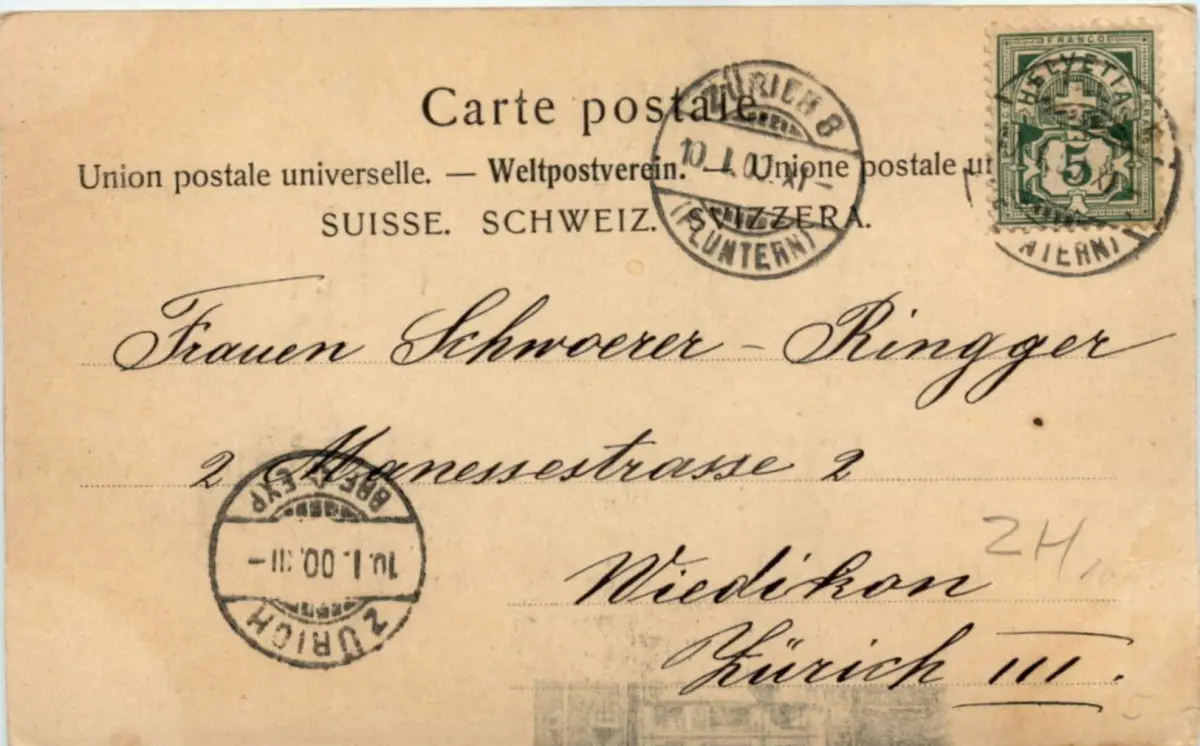 FRANCO
HELVETIA
5
Carte postale
ZÜRICH 8
10.I.00.XI–
(FLUNTERN)
Union postale universelle. — Weltpostverein. — Unione postale un
SUISSE. SCHWEIZ. SVIZZERA.
NTERN)
Frauen Schwoerer – Ringger
2 Manessestrasse 2
BRF. EXP
10.I.00.XII–
ZÜRICH
Wiedikon
ZH
Zürich III.